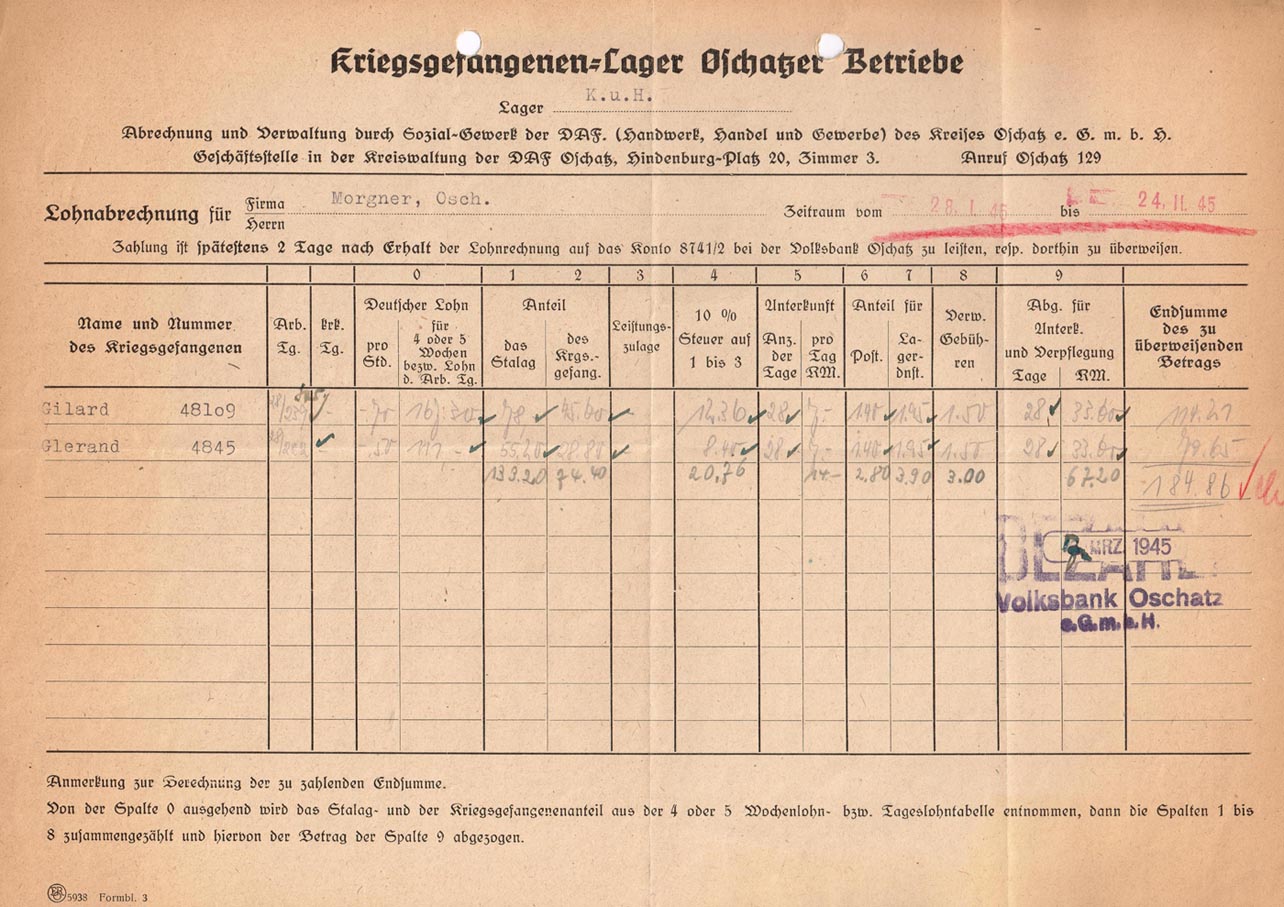 Kriegsgefangenen-Lager Oschatzer Betriebe
Lager K.u.H.
Abrechnung und Verwaltung durch Sozial-Gewerk der DAF. (Handwerk, Handel und Gewerbe) des Kreises Oschatz e. G. m. b. H.
Geschäftsstelle in der Kreiswaltung der DAF Oschatz, Hindenburg-Platz 20, Zimmer 3. Anruf Oschatz 129
Lohnabrechnung für Firma Herrn Morgner, Osch. Zeitraum vom 28. I. 45 bis 24. II. 45
Zahlung ist spätestens 2 Tage nach Erhalt der Lohnrechnung auf das Konto 8741/2 bei der Volksbank Oschatz zu leisten, resp. dorthin zu überweisen.
0 1 2 3 4 5 6 7 8 9
Name und Nummer des Kriegsgefangenen
Arb. Tg.
Krk. Tg.
Deutscher Lohn
pro Std.
für 4 oder 5 Wochen bezw. Lohn d. Arb. Tg.
Anteil
das Stalag
des Krgs.-gefang.
Leistungs-zulage
10 % Steuer auf 1 bis 3
Unterkunft
Anz. der Tage
pro Tag RM.
Anteil für
Post.
La-ger-dnst.
Verw. Gebüh-ren
Abg. für Unterk. und Verpflegung
Tage
RM.
Endsumme des zu überweisenden Betrags
Gilard 48109 -70 167.30 78,- 45.60 12,36 28 7.- 1.40 1.95 1.50 28 33.60 114.21
Glerand 4845 -.50 55,20 28.80 8.40 28 7.- 1.40 1.95 1.50 28 33.60 79.65
133.20 74.40 20,76 14.- 2.80 3.90 3.00 67.20 184.86
BEZAHLT
MRZ. 1945
Volksbank Oschatz
e.G.m.b.H.
Anmerkung zur Berechnung der zu zahlenden Endsumme.
Von der Spalte 0 ausgehend wird das Stalag- und der Kriegsgefangenenanteil aus der 4 oder 5 Wochenlohn- bzw. Tageslohntabelle entnommen, dann die Spalten 1 bis
8 zusammengezählt und hiervon der Betrag der Spalte 9 abgezogen.
5938 Formbl. 3